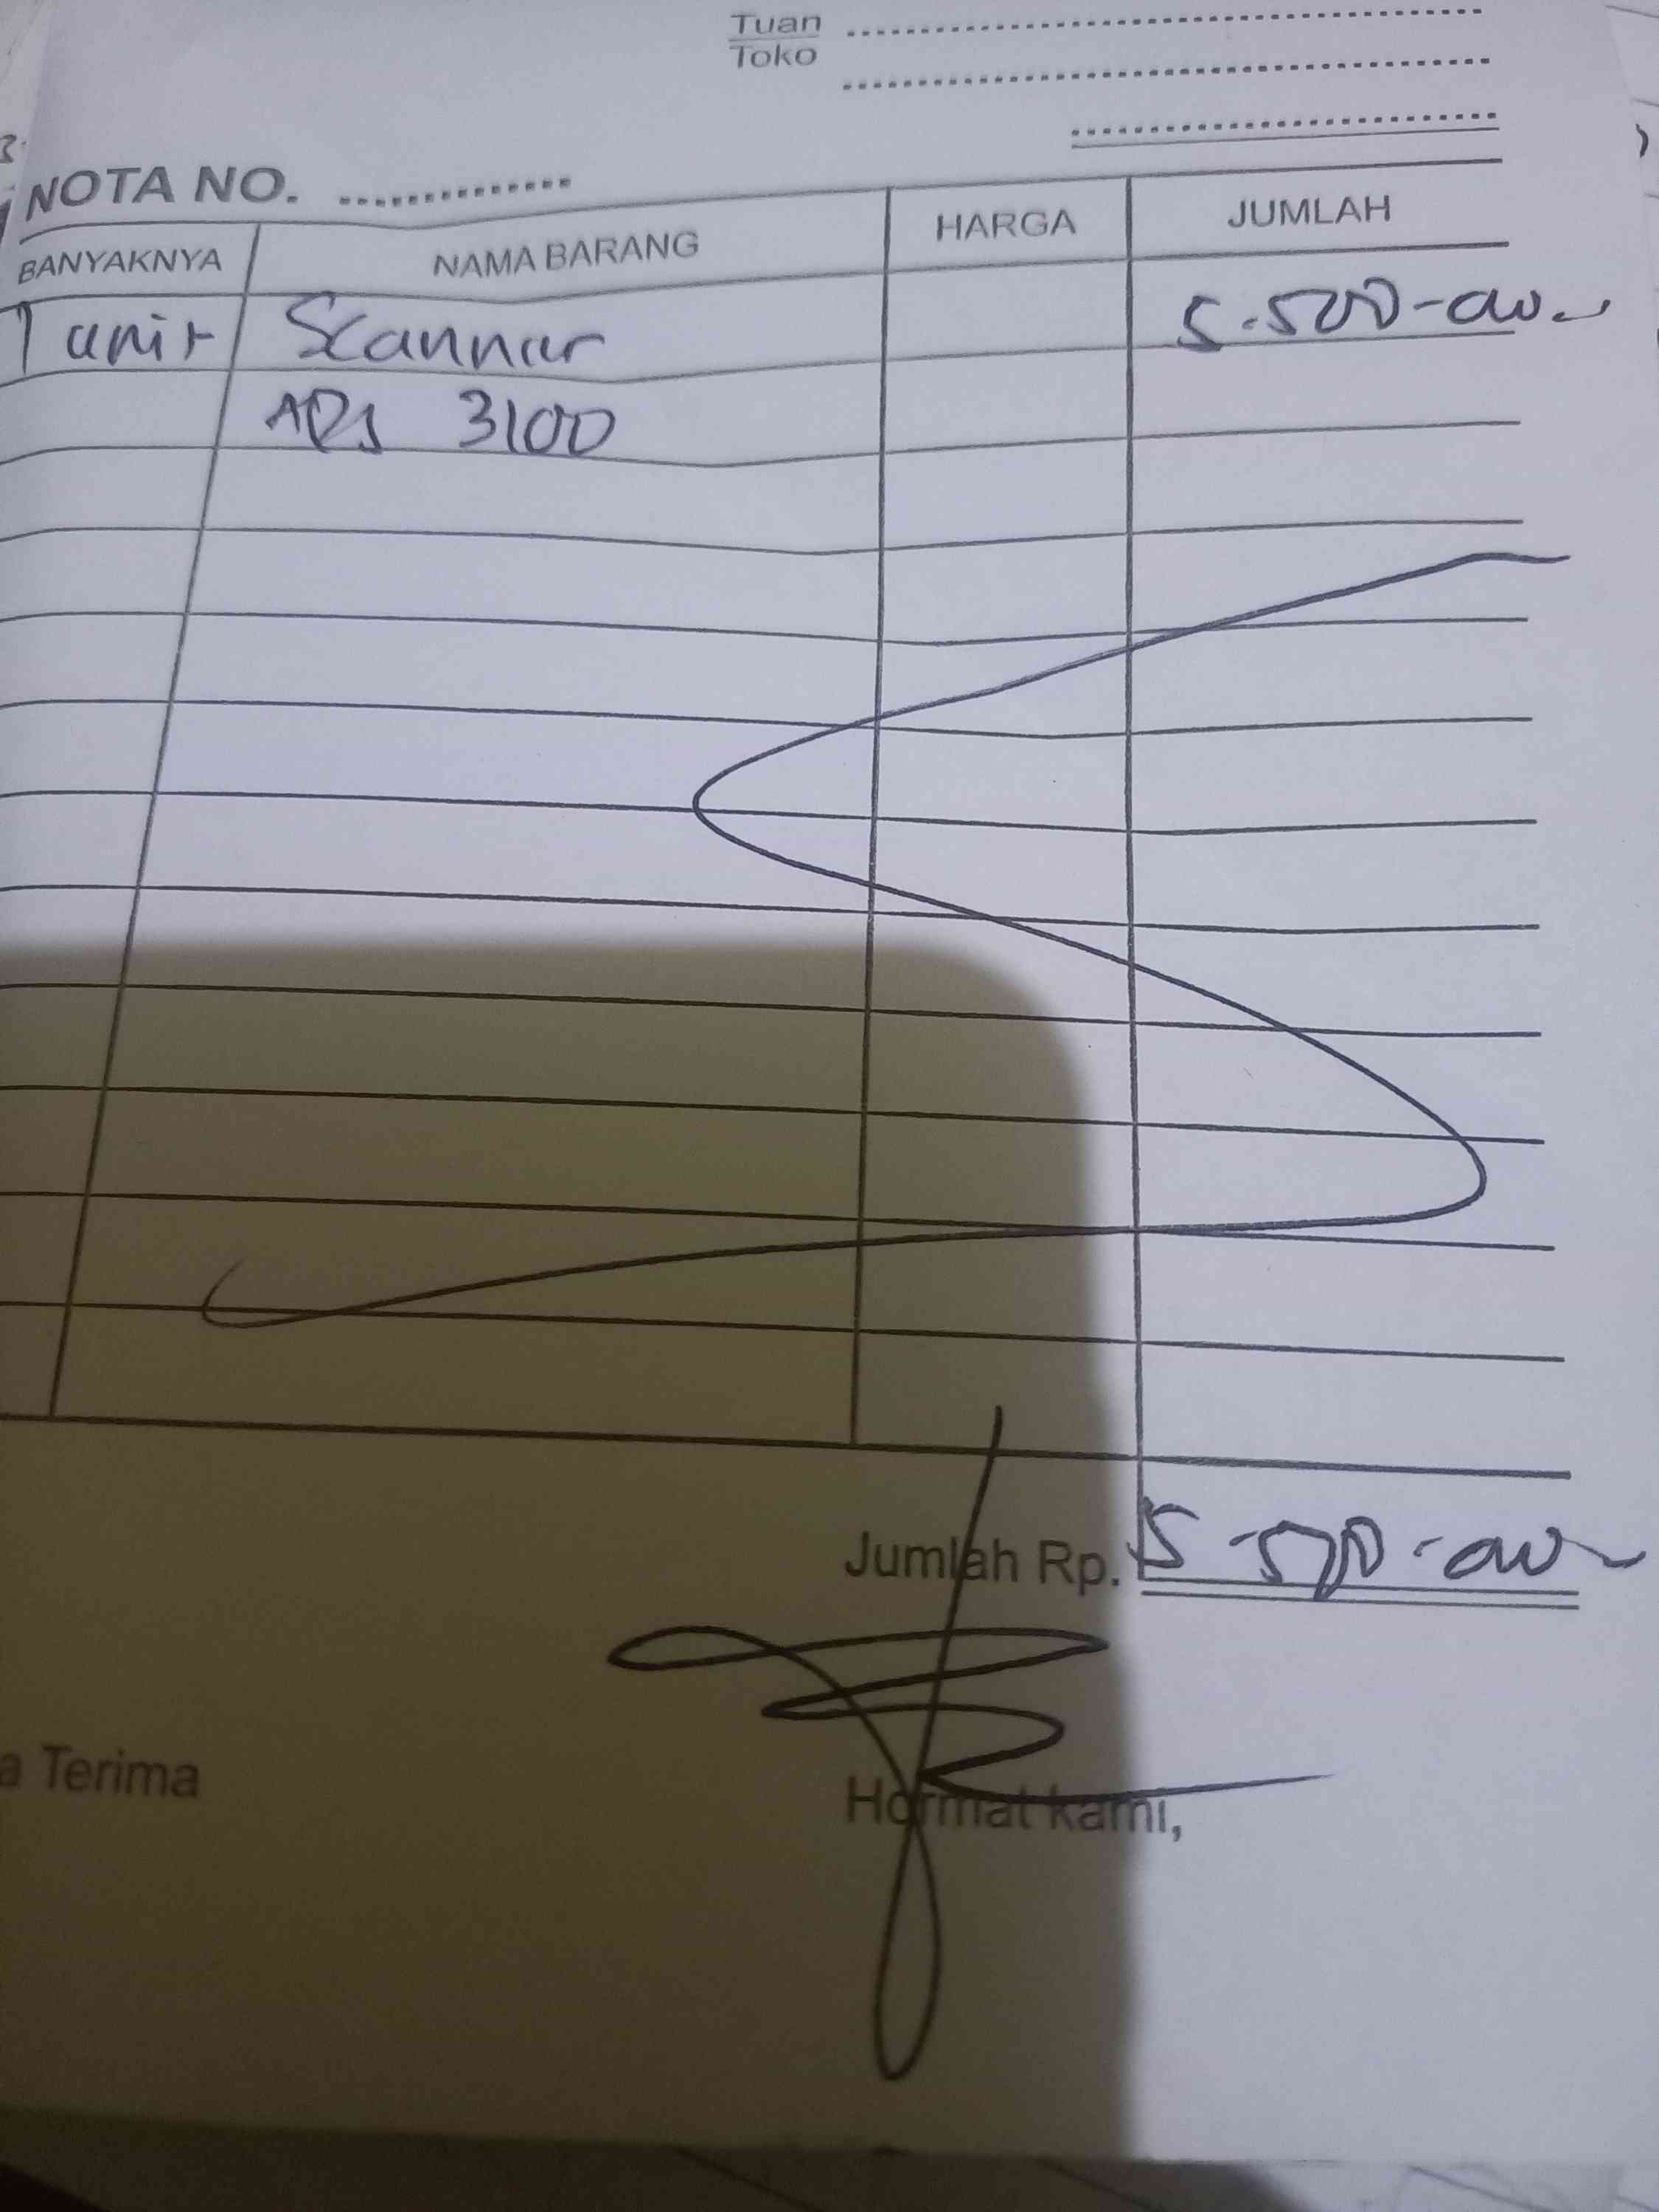 Tuan
Toko
NOTA NO.
BANYAKNYA NAMA BARANG HARGA JUMLAH
1 unit Scanner 5.500.000
ADS 3100
Jumlah Rp. 5.500.000
a Terima
Hormat kami,